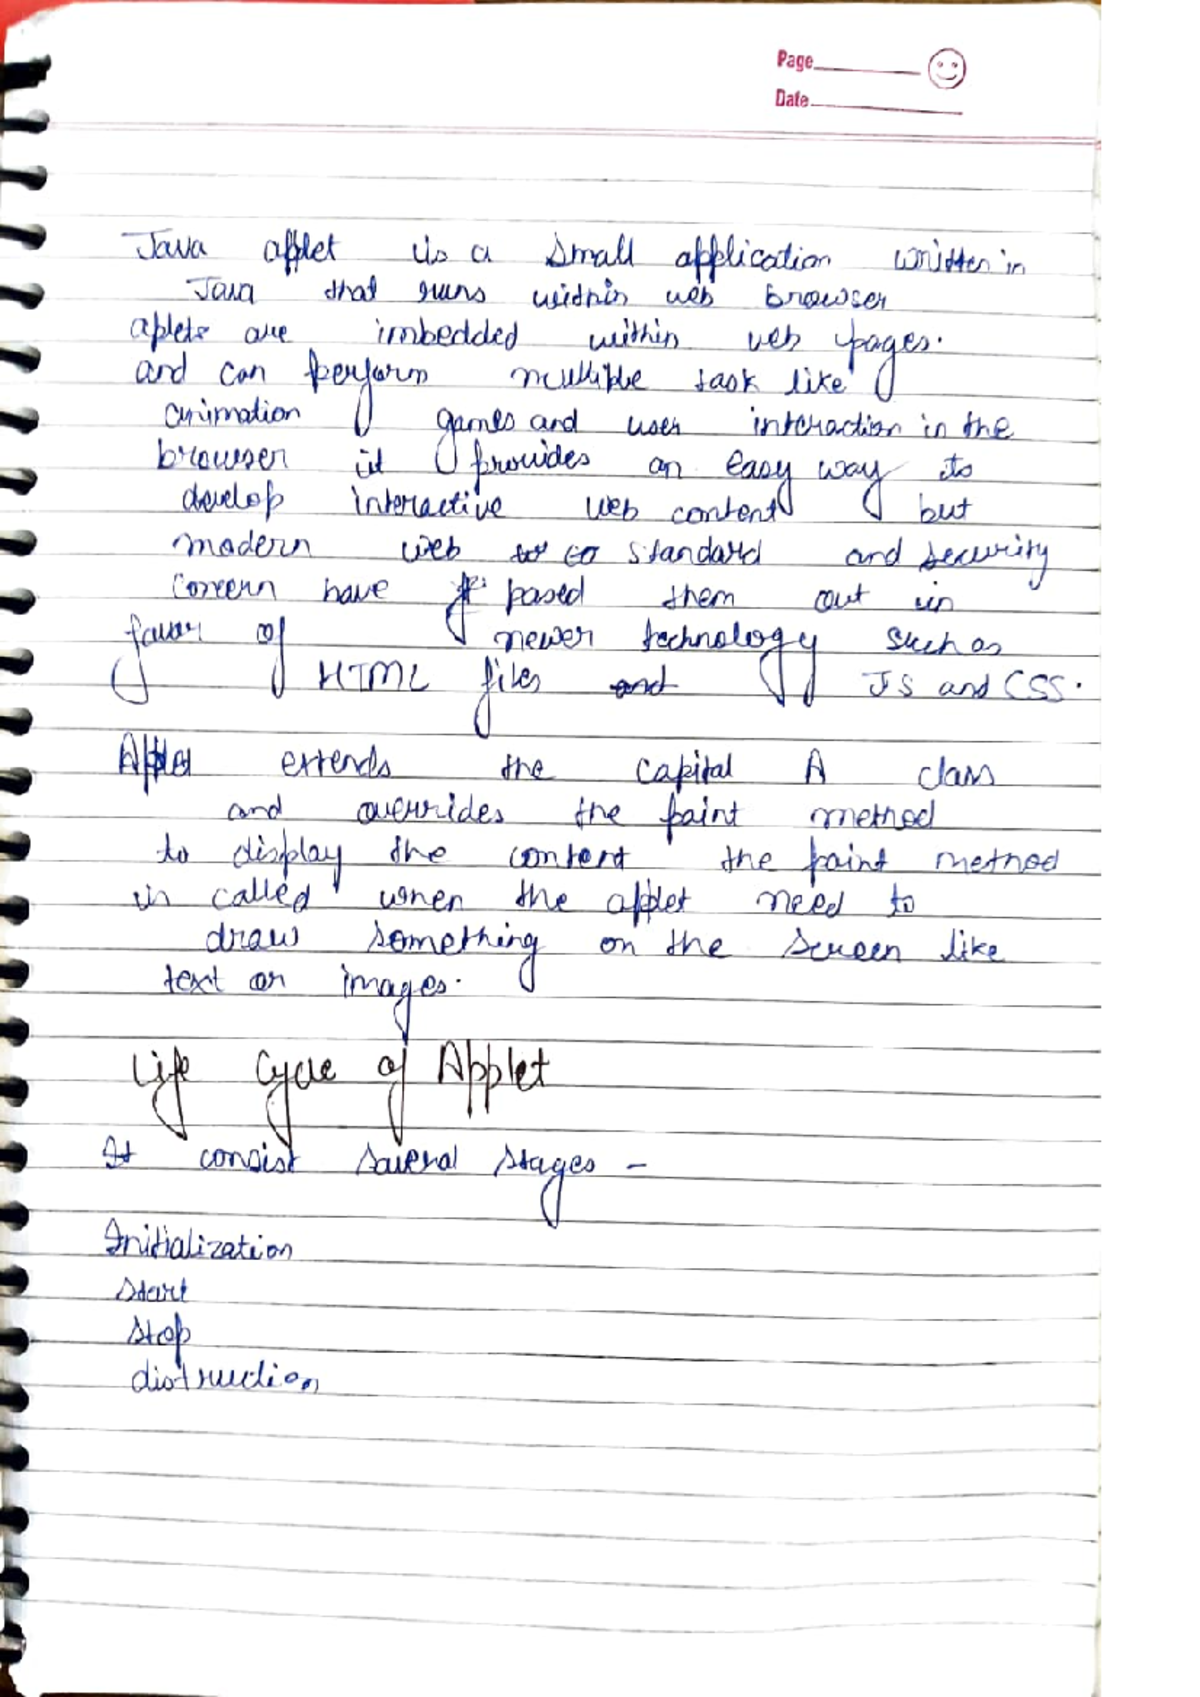 Page
Date
Java applet is a small application written in
Java that runs within web browser
aplets are imbedded within web pages.
and can perform multiple task like
animation games and user interaction in the
browser it provides an easy way to
develop interactive web content but
modern web to standard and security
concern have pased them out in
favor of newer technology such as
HTML files and JS and CSS.
Applet extends the capital A class
and overrides the paint method
to display the content the paint method
is called when the applet need to
draw something on the screen like
text or images.
Life Cycle of Applet
It consist several stages -
Initialization
start
stop
distruction